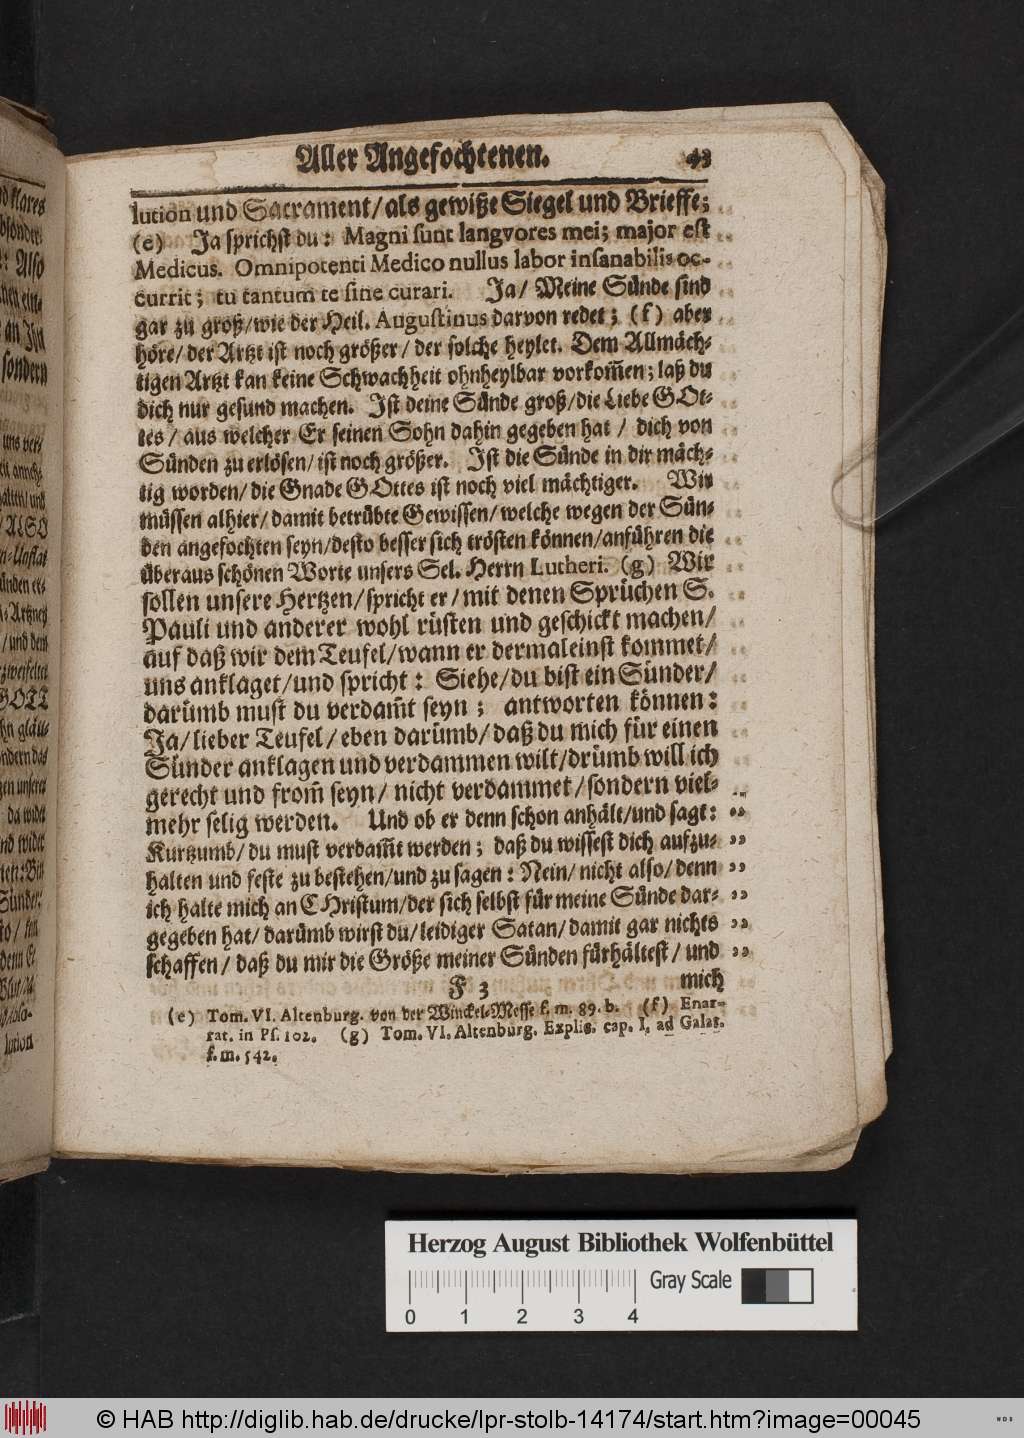 Aller Angefochtenen. 43
lution und Sacrament/als gewiße Siegel und Brieffe;
(e) Ja sprichst du: Magni sunt langvores mei; major est
Medicus. Omnipotenti Medico nullus labor insanabilis oc-
currit; tu tantum te sine curari. Ja/ Meine Sünde sind
gar zu groß/wie der Heil. Augustinus darvon redet; (f) aber
höre/der Artzt ist noch größer/der solche heylet. Dem Allmäch-
tigen Artzt kan keine Schwachheit ohnheylbar vorkom̃en; laß du
dich nur gesund machen. Ist deine Sünde groß/die Liebe GOt-
tes/ aus welcher Er seinen Sohn dahin gegeben hat / dich von
Sünden zu erlösen/ist noch größer. Ist die Sünde in dir mäch-
tig worden/die Gnade GOttes ist noch viel mächtiger. Wir
müssen alhier/damit betrübte Gewissen/welche wegen der Sün-
den angefochten seyn/desto besser sich trösten können/anführen die
überaus schönen Worte unsers Sel. Herrn Lutheri. (g) Wir
sollen unsere Hertzen/spricht er/mit denen Sprüchen S.
Pauli und anderer wohl rüsten und geschickt machen/
auf daß wir dem Teufel/wann er dermaleinst kommet/
uns anklaget/und spricht: Siehe/du bist ein Sünder/
darümb must du verdam̃t seyn; antworten können:
Ja/lieber Teufel/eben darümb/daß du mich für einen
Sünder anklagen und verdammen wilt/drümb will ich
gerecht und from̃ seyn/ nicht verdammet/sondern viel-
mehr selig werden. Und ob er denn schon anhält/und sagt:
Kurtzumb/du must verdam̃t werden; daß du wissest dich aufzu- „
halten und feste zu bestehen/und zu sagen: Nein/ nicht also/denn „
ich halte mich an CHristum/der sich selbst für meine Sünde dar- „
gegeben hat/darümb wirst du/leidiger Satan/damit gar nichts „
schaffen/ daß du mir die Größe meiner Sünden fürhältest/ und „
F 3 mich
(e) Tom. VI. Altenburg. von der Winckel-Messe f. m. 89. b. (f) Enar-
rat. in Ps. 102. (g) Tom. VI. Altenburg. Explic. cap. I. ad Galat.
f. m. 542.
Herzog August Bibliothek Wolfenbüttel
0 1 2 3 4 Gray Scale
© HAB http://diglib.hab.de/drucke/lpr-stolb-14174/start.htm?image=00045